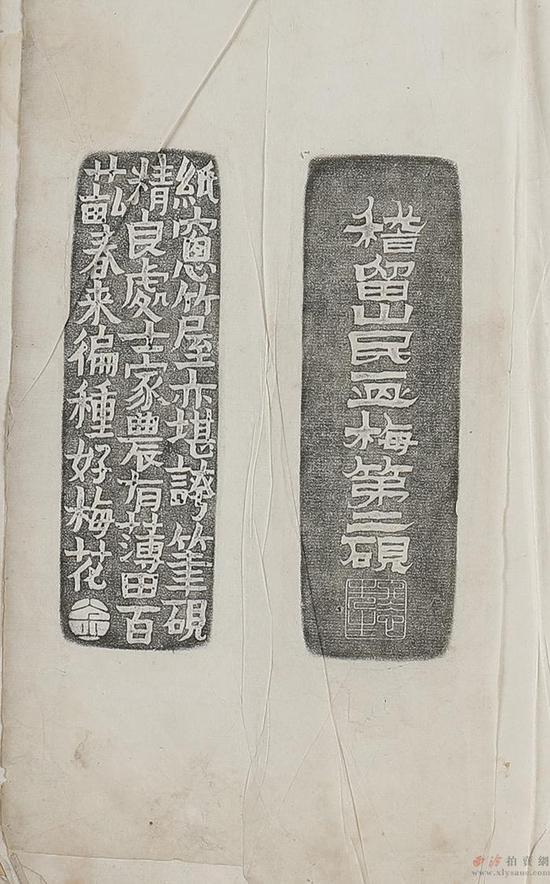 稽留山民画梅第二硯
紙窗竹屋亦堪誇筆硯
精良處士家農有薄田百
畝春来徧種好梅花
西泠拍賣網
www.xlysauc.com